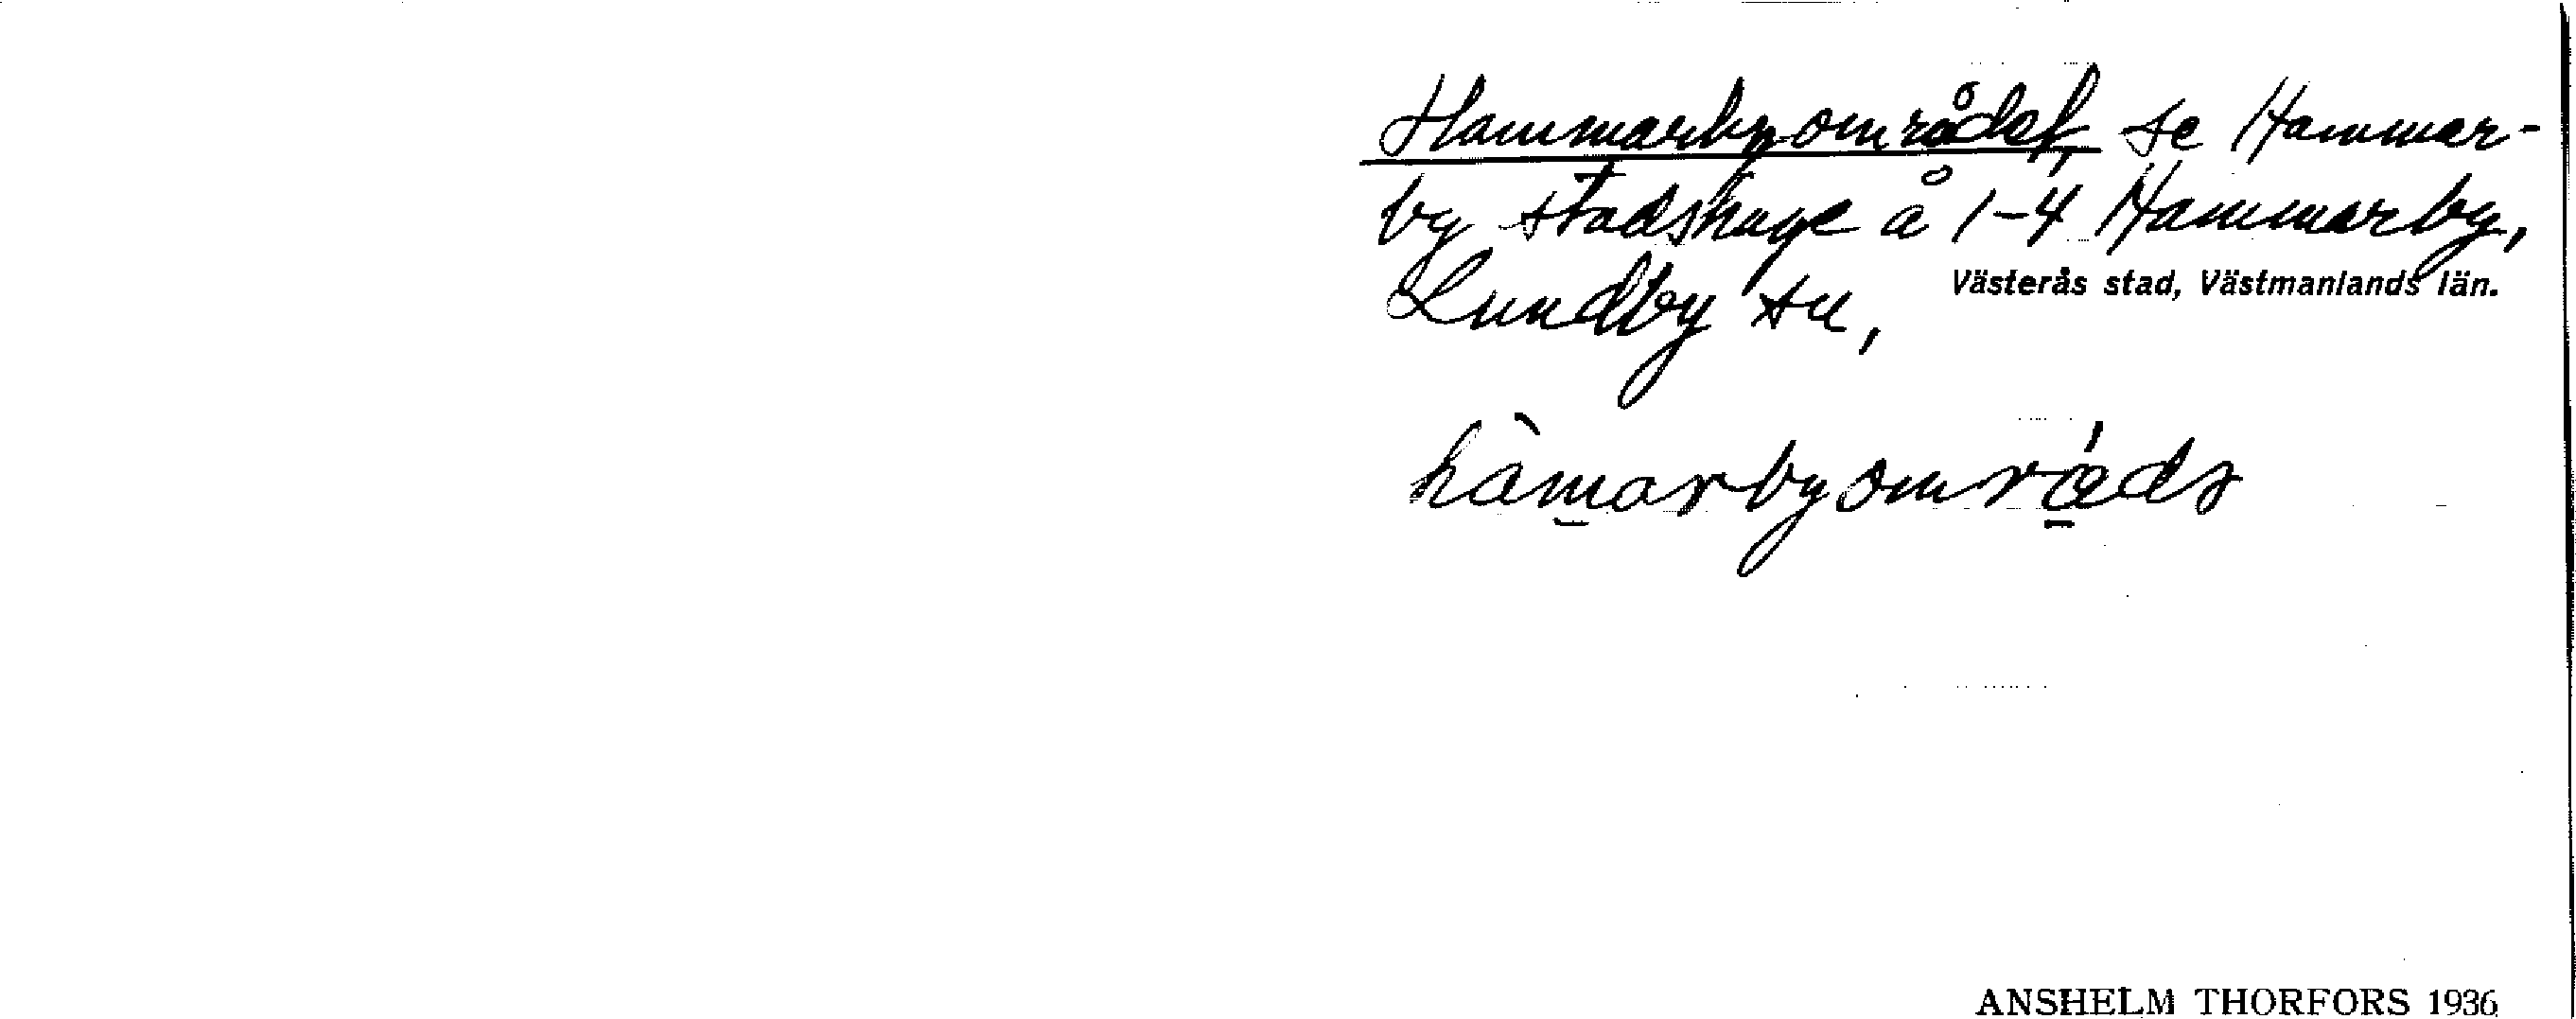 Hammarbyområdet, se Hammar-
by stadshage å 1-4 Hammarby,
Lundby sn,
Västerås stad, Västmanlands län.
hàmarbyomrǻdə
ANSHELM THORFORS 1936